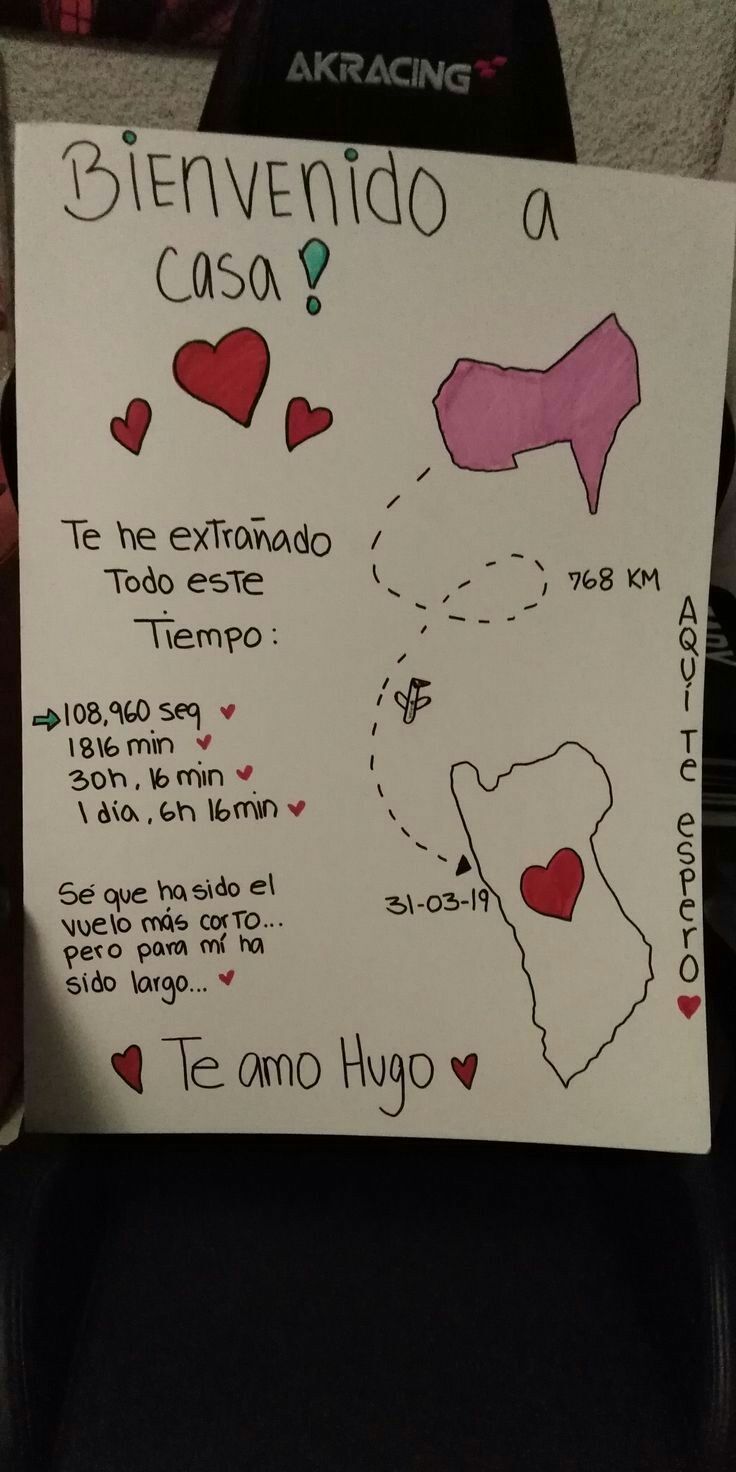 AKRACING
BIENVENIDO a
casa!
Te he extrañado
Todo este
Tiempo:
108,960 seg
1816 min
30h, 16 min
1 día, 6h 16min
Sé que ha sido el
vuelo más corto...
pero para mí ha
sido largo...
Te amo Hugo
768 KM
31-03-19
AQUÍ Te espero